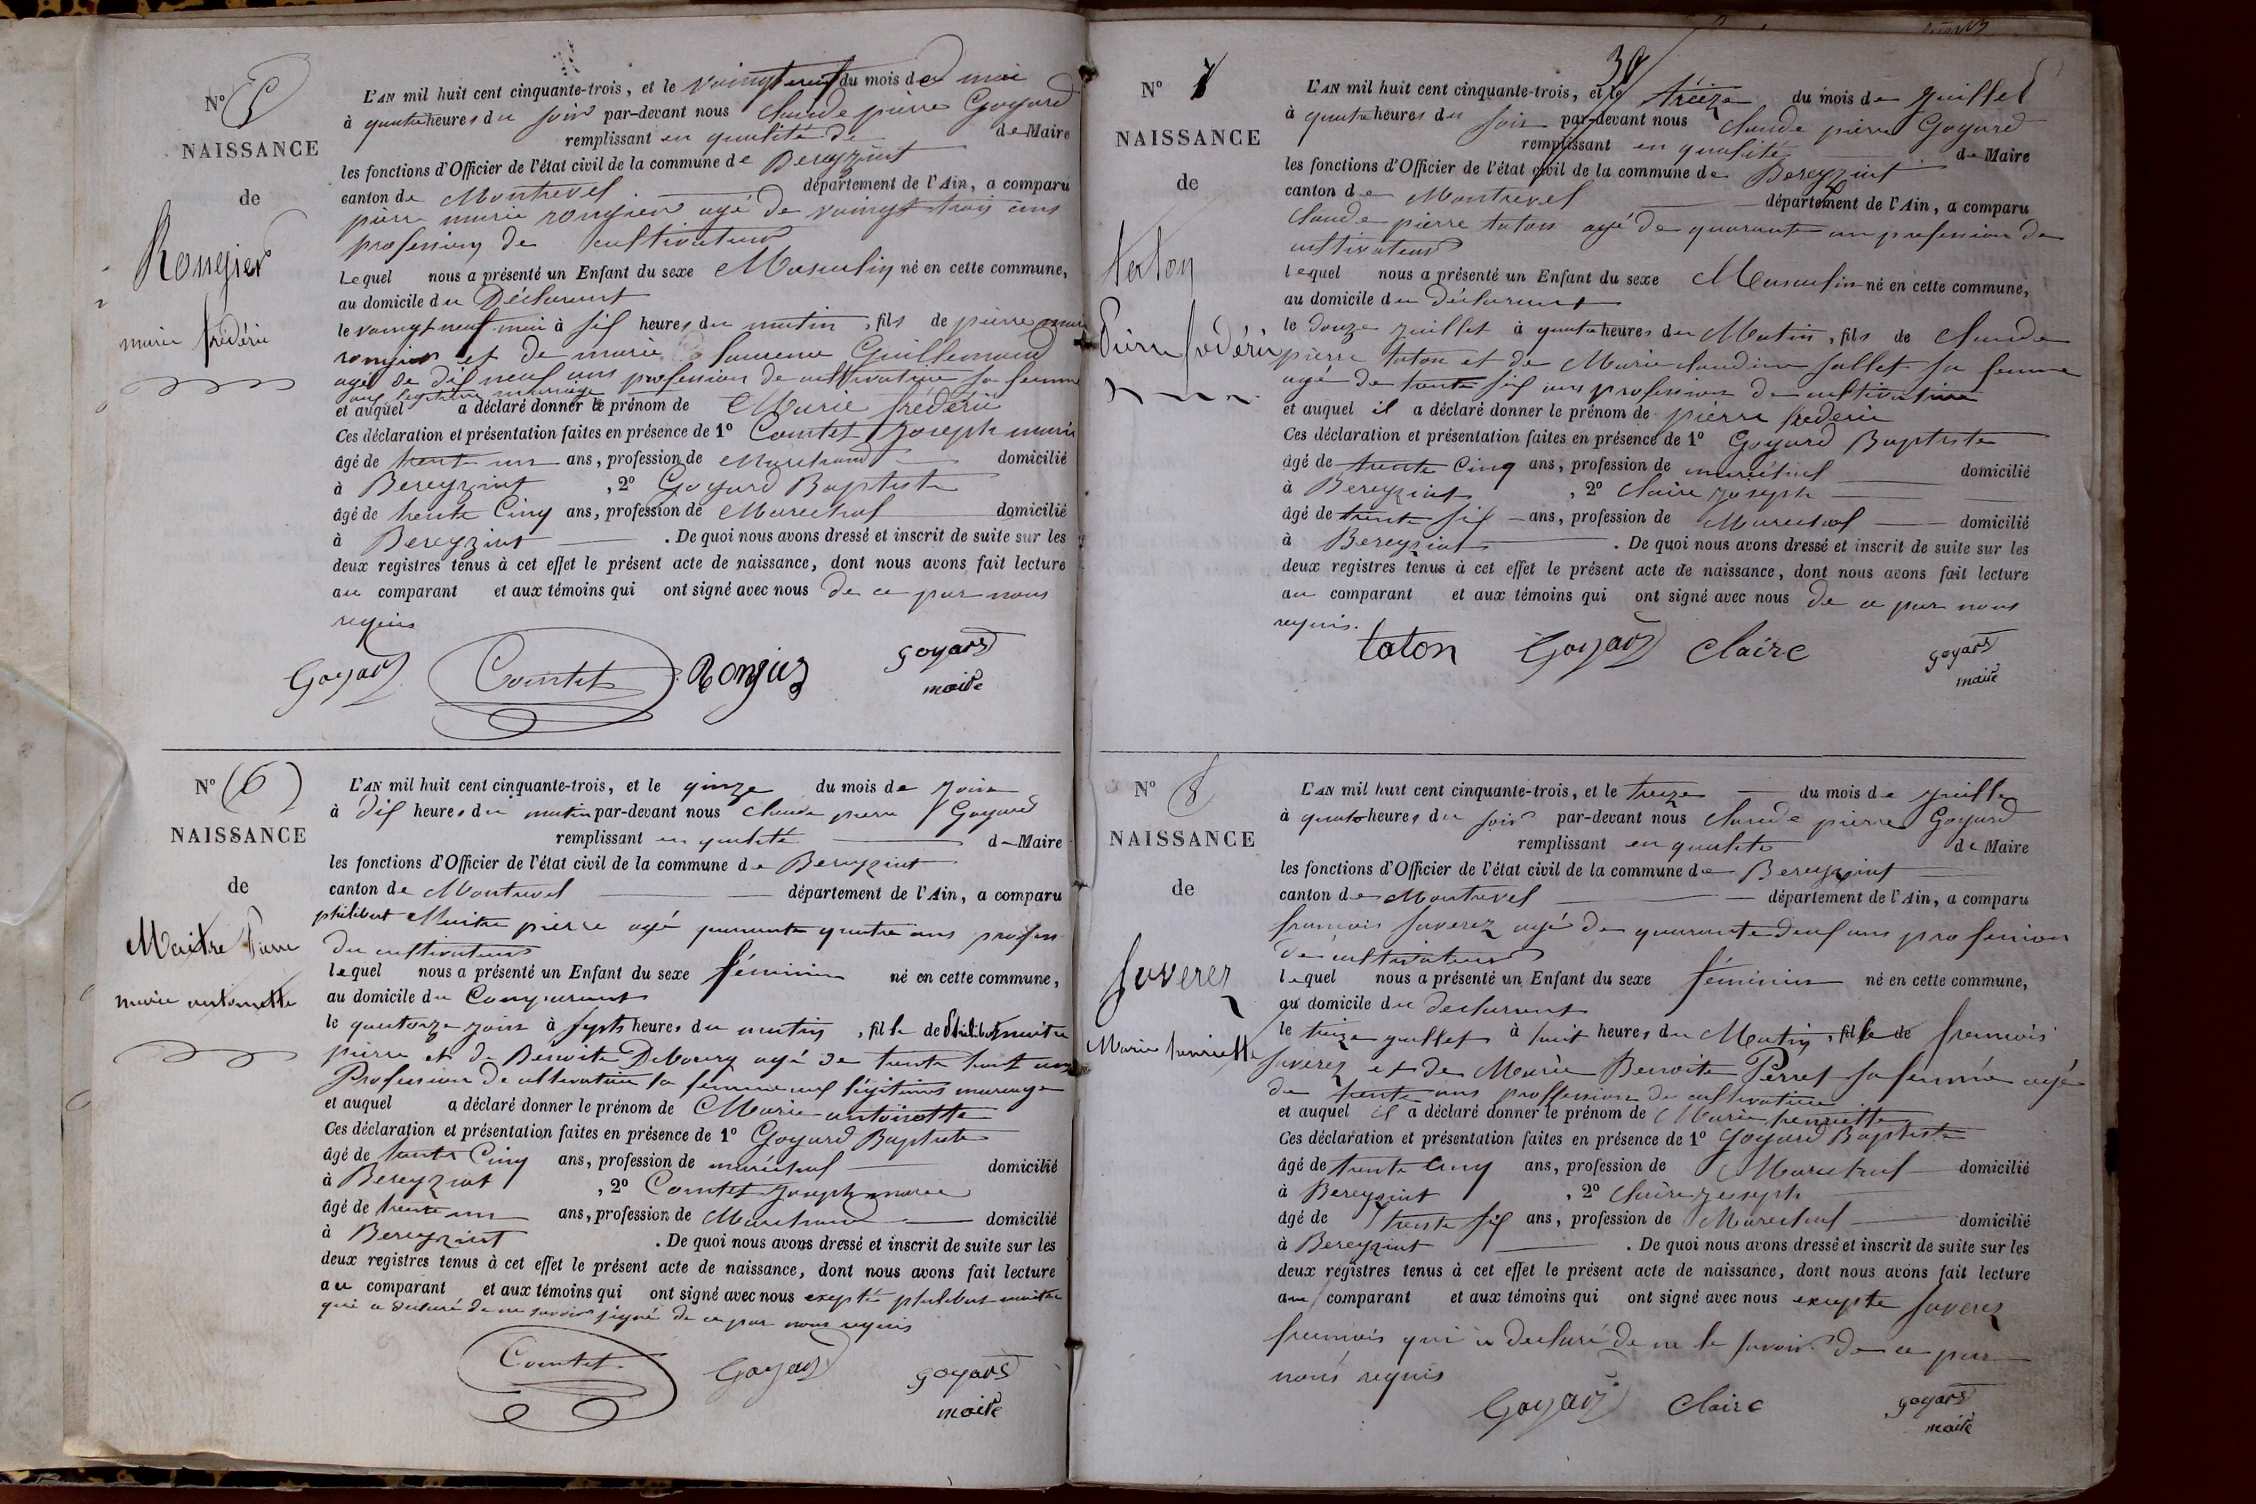 N° 5
NAISSANCE
de
Rongier
marie frédéric
L'AN mil huit cent cinquante-trois, et le vaingt neuf du mois de mai
à quatre heures du soir par-devant nous claude pierre Goyard
remplissant en qualité de de Maire
les fonctions d'Officier de l'état civil de la commune de Bereyziat
canton de Montrevel département de l'Ain, a comparu
pierre marie rongier agé de vaingt trois ans
profession de cultivateur
Lequel nous a présenté un Enfant du sexe Masculin né en cette commune,
au domicile du Déclarant
le vaingt neuf mai à six heures du matin, fils de pierre marie
rongier et de marie laurence Guillemaud
agée de dix neuf ans profession de cultivatrice sa femme
légitime mariage
et auquel a déclaré donner le prénom de Marie frédéric
Ces déclaration et présentation faites en présence de 1° Comtet Joseph marie
âgé de trente un ans, profession de Marchand domicilié
à Bereyziat, 2° Goyard Baptiste
âgé de trente Cinq ans, profession de Marechal domicilié
à Bereyziat. De quoi nous avons dressé et inscrit de suite sur les
deux registres tenus à cet effet le présent acte de naissance, dont nous avons fait lecture
au comparant et aux témoins qui ont signé avec nous de ce par nous
requis
Goyard Comtet Rongier goyard
maire
N° (6)
NAISSANCE
de
Maitre Pierre
marie antoinette
L'AN mil huit cent cinquante-trois, et le quinze du mois de Join
à dix heures du matin par-devant nous claude pierre Goyard
remplissant en qualité de Maire
les fonctions d'Officier de l'état civil de la commune de Bereyziat
canton de Montrevel département de l'Ain, a comparu
philibert Maitre pierre agé quarante quatre ans profession
de cultivateur
lequel nous a présenté un Enfant du sexe féminin né en cette commune,
au domicile du Comparant
le quatorze join à sept heures du matin, fille de Philibert maitre
pierre et de Benoite Debourg agé de trente huit ans
Profession de cultivatrice sa femme légitime mariage
et auquel a déclaré donner le prénom de Marie antoinette
Ces déclaration et présentation faites en présence de 1° Goyard Baptiste
âgé de trente Cinq ans, profession de maréchal domicilié
à Bereyziat, 2° Comtet Joseph marie
âgé de trente un ans, profession de Marchand domicilié
à Bereyziat. De quoi nous avons dressé et inscrit de suite sur les
deux registres tenus à cet effet le présent acte de naissance, dont nous avons fait lecture
au comparant et aux témoins qui ont signé avec nous excepté philibert maitre
qui a déclaré de ne savoir signé de ce par nous requis
Comtet Goyard goyard
maire
38
N° 7
NAISSANCE
de
taton
Pierre fréderic
L'AN mil huit cent cinquante-trois, et le tréize du mois de Juillet
à quatre heures du soir par-devant nous claude pierre Goyard
remplissant en qualité de Maire
les fonctions d'Officier de l'état civil de la commune de Bereyziat
canton de Montrevel département de l'Ain, a comparu
claude pierre taton agé de quarante un profession de
cultivateur
lequel nous a présenté un Enfant du sexe Masculin né en cette commune,
au domicile du déclarant
le douze juillet à quatre heures du Matin, fils de claude
pierre taton et de Marie claudine sallet sa femme
agé de trente six ans profession de cultivatrice
et auquel il a déclaré donner le prénom de pierre frederic
Ces déclaration et présentation faites en présence de 1° Goyard Baptiste
âgé de trente Cinq ans, profession de maréchal domicilié
à Bereyziat, 2° claire joseph
âgé de trente six ans, profession de Marechal domicilié
à Bereyziat. De quoi nous avons dressé et inscrit de suite sur les
deux registres tenus à cet effet le présent acte de naissance, dont nous avons fait lecture
au comparant et aux témoins qui ont signé avec nous de ce par nous
requis.
taton Goyard Claire goyard
maire
N° 8
NAISSANCE
de
faverez
Marie henriette
L'AN mil huit cent cinquante-trois, et le treize du mois de Juillet
à quatre heures du soir par-devant nous claude pierre Goyard
remplissant en qualité de Maire
les fonctions d'Officier de l'état civil de la commune de Bereyziat
canton de Montrevel département de l'Ain, a comparu
francois faverez agé de quarante deux ans profession
de cultivateur
lequel nous a présenté un Enfant du sexe féminin né en cette commune,
au domicile du declarant
le treize juillet à huit heures du Matin, fille de francois
faverez et de Marie Benoite Perret sa femme agé
de trente ans proffession de cultivatrice
et auquel il a déclaré donner le prénom de Marie henriette
Ces déclaration et présentation faites en présence de 1° Goyard Baptiste
âgé de trente Cinq ans, profession de Marechal domicilié
à Bereyziat, 2° claire joseph
âgé de trente six ans, profession de Marechal domicilié
à Bereyziat. De quoi nous avons dressé et inscrit de suite sur les
deux registres tenus à cet effet le présent acte de naissance, dont nous avons fait lecture
au comparant et aux témoins qui ont signé avec nous excepte faverez
francois qui a declaré de ne le savoir de ce par
nous requis
Goyard Claire goyard
maire